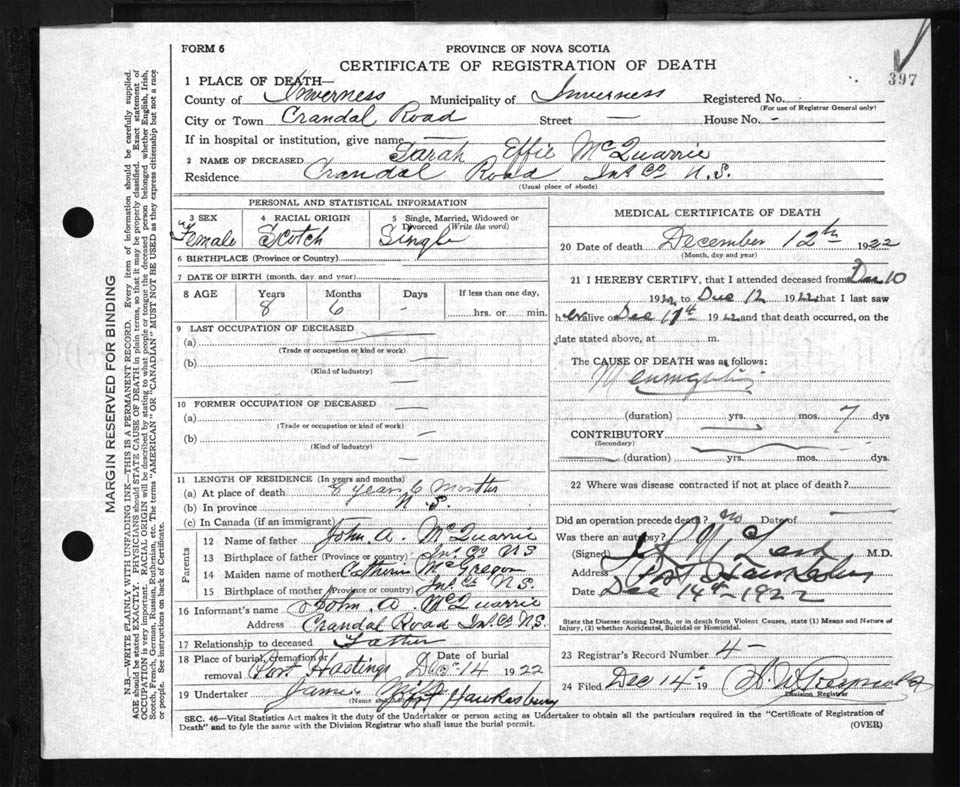 397
FORM 6
PROVINCE OF NOVA SCOTIA
CERTIFICATE OF REGISTRATION OF DEATH
1 PLACE OF DEATH—
County of Inverness Municipality of Inverness Registered No.
(For use of Registrar General only)
City or Town Crandal Road Street — House No. -
If in hospital or institution, give name —
2 NAME OF DECEASED Sarah Effie McQuarrie
Residence Crandal Road Int Co N.S.
(Usual place of abode)
PERSONAL AND STATISTICAL INFORMATION
3 SEX Female
4 RACIAL ORIGIN Scotch
5 Single, Married, Widowed or Divorced (Write the word) Single
6 BIRTHPLACE (Province or Country)
7 DATE OF BIRTH (month, day, and year)
8 AGE Years 8 Months 6 Days - If less than one day, hrs. or min.
9 LAST OCCUPATION OF DECEASED
(a) —
(Trade or occupation or kind or work)
(b) —
(Kind of industry)
10 FORMER OCCUPATION OF DECEASED
(a) —
(Trade or occupation or kind of work)
(b) —
(Kind of industry)
11 LENGTH OF RESIDENCE (In years and months)
(a) At place of death 8 years 6 months
(b) In province N.S.
(c) In Canada (if an immigrant)
Parents
12 Name of father John A. McQuarrie
13 Birthplace of father (Province or country) Int Co NS
14 Maiden name of mother Catherin McGregor
15 Birthplace of mother (Province or country) Int Co N.S.
16 Informant's name John A McQuarrie
Address Crandal Road Int Co N.S.
17 Relationship to deceased Father
18 Place of burial, cremation or removal Port Hastings Date of burial Dec 14 1922
19 Undertaker James
(Name and address) Port Hawkesbury
MEDICAL CERTIFICATE OF DEATH
20 Date of death December 12th 1922
(Month, day and year)
21 I HEREBY CERTIFY, that I attended deceased from Dec 10
1922 to Dec 12 1922 that I last saw
her alive on Dec 11th 1922 and that death occurred, on the
date stated above, at m.
The CAUSE OF DEATH was as follows:
(duration) yrs. mos. 7 dys
CONTRIBUTORY
(Secondary)
(duration) yrs. mos. dys.
22 Where was disease contracted if not at place of death?
Did an operation precede death? no Date of —
Was there an autopsy?
(Signed) M.D.
Address Port Hawkesbury
Date Dec 14th - 1922
State the Disease causing Death, or in death from Violent Causes, state (1) Means and Nature of
Injury, (2) whether Accidental, Suicidal or Homicidal.
23 Registrar's Record Number 4 -
24 Filed Dec 14 - 19
Division Registrar
SEC. 46—Vital Statistics Act makes it the duty of the Undertaker or person acting as Undertaker to obtain all the particulars required in the "Certificate of Registration of
Death" and to fyle the same with the Division Registrar who shall issue the burial permit.
(OVER)
MARGIN RESERVED FOR BINDING
N.B.—WRITE PLAINLY WITH UNFADING INK—THIS IS A PERMANENT RECORD. Every item of information should be carefully supplied.
AGE should be stated EXACTLY. PHYSICIANS should STATE CAUSE OF DEATH in plain terms, so that it may be properly classified. Exact statement of
OCCUPATION is very important. RACIAL ORIGIN will be described by stating to what people or tongue the deceased person belonged whether English, Irish,
Scotch, French, German, Russian, Ruthenian, etc. The terms "AMERICAN" OR "CANADIAN" MUST NOT BE USED as they express citizenship but not a race
or people. See instructions on back of Certificate.